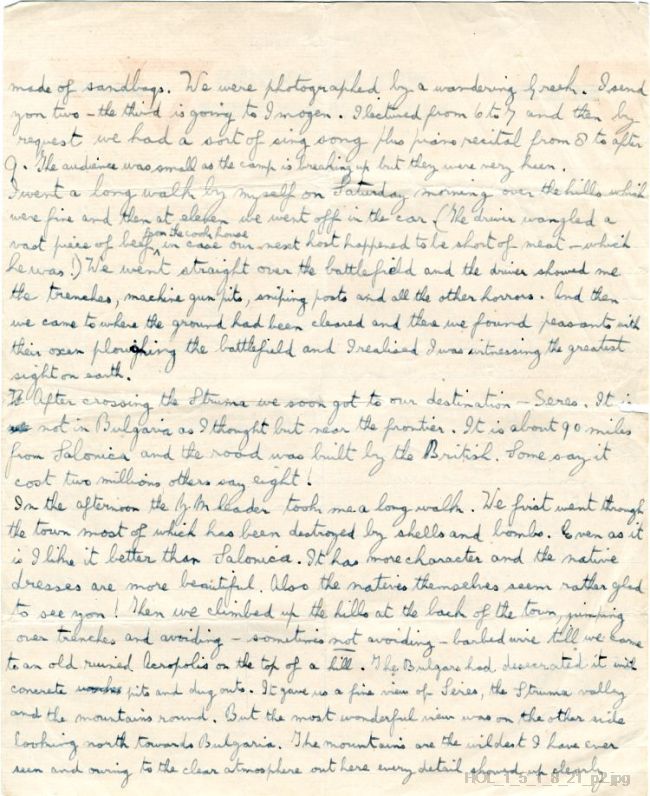 made of sandbags. We were photographed by a wandering Greek. I send
you two – the third is going to Imogen. I lectured from 6 to 7 and then by
request we had a sort of sing song plus piano recital from 8 to after
9. The audience was small as the camp is breaking up but they were very keen.
I went a long walk by myself on Saturday morning over the hills which
were fine and then at eleven we went off in the car (The driver wangled a
from the cook house
vast piece of beef ^ in case our next host happened to be short of meat – which
he was!) We went straight over the battlefield and the driver showed me
the trenches, machine gun pits, sniping posts and all the other horrors. And then
we came to where the ground had been cleared and there we found peasants with
their oxen ploughing the battlefield and I realised I was witnessing the greatest
sight on earth.
After crossing the Struma we soon got to our destination – Seres. It is
not in Bulgaria as I thought but near the frontier. It is about 90 miles
from Salonica and the road was built by the British. Some say it
cost two millions others say eight!
In the afternoon the Y M leader took me a long walk. We first went through
the town most of which has been destroyed by shells and bombs. Even as it
is I like it better than Salonica. It has more character and the native
dresses are more beautiful. Also the natives themselves seem rather glad
to see you! Then we climbed up the hills at the back of the town, jumping
over trenches and avoiding – sometimes not avoiding – barbed wire till we came
to an old ruined Acropolis on the top of a hill. The Bulgars had desecrated it with
concrete pits and dug outs. It gave us a fine view of Seres, the Struma valley
and the mountains round. But the most wonderful view was on the other side
looking north towards Bulgaria. The mountains are the wildest I have ever
seen and owing to the clear atmosphere out here every detail showed up clearly
HOL_1_5_1_8_21_p2.jpg